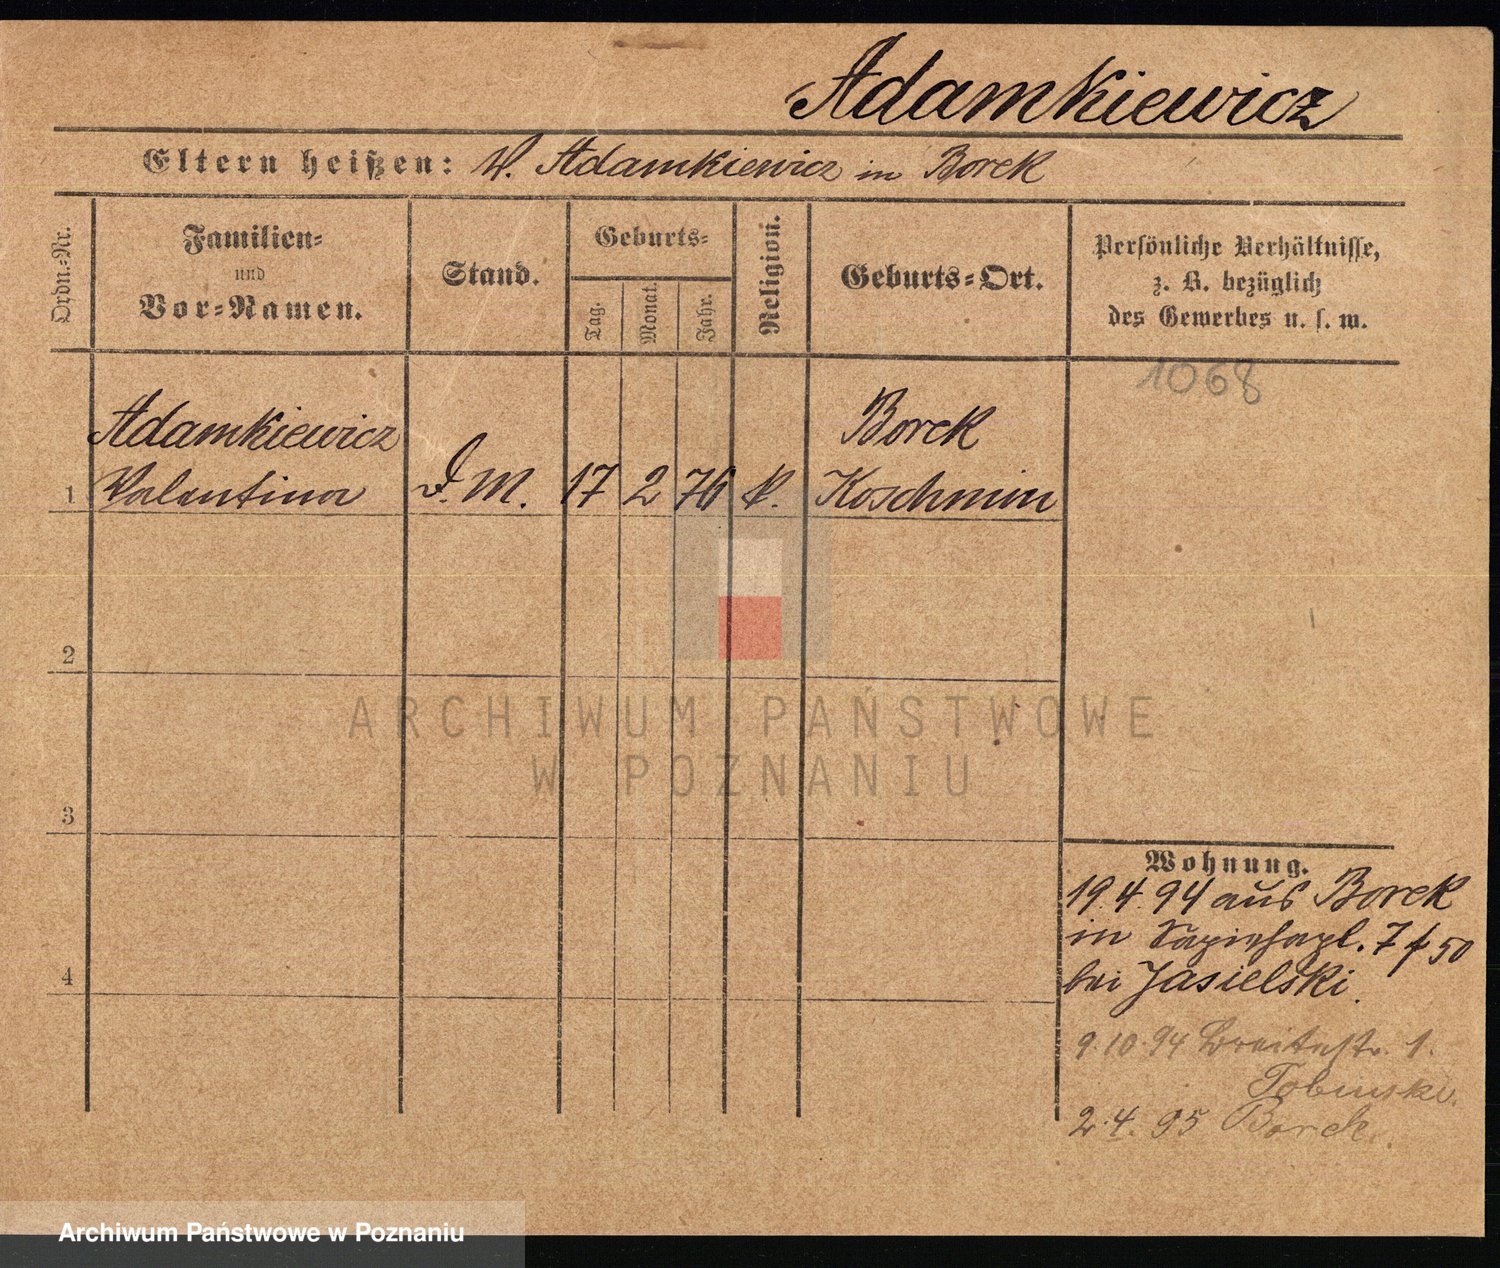 Adamkiewicz
Eltern heißen: W. Adamkiewicz in Borek
Ordn.-Nr.
Familien-
und
Vor-Namen.
Stand.
Geburts-
Tag.
Monat.
Jahr.
Religion.
Geburts-Ort.
Persönliche Verhältnisse,
z. B. bezüglich
des Gewerbes u. s. w.
1068
Adamkiewicz Borek
1 Valentina D. M. 17 2 76 k. Koschmin
2
3
4
ARCHIWUM PAŃSTWOWE
W POZNANIU
Wohnung.
19.4.94 aus Borek
in Sapiehapl. 7 f 50
bei Jasielski.
9.10.94 Breitestr. 1.
Tobinski.
2.4.95 Borek.
Archiwum Państwowe w Poznaniu